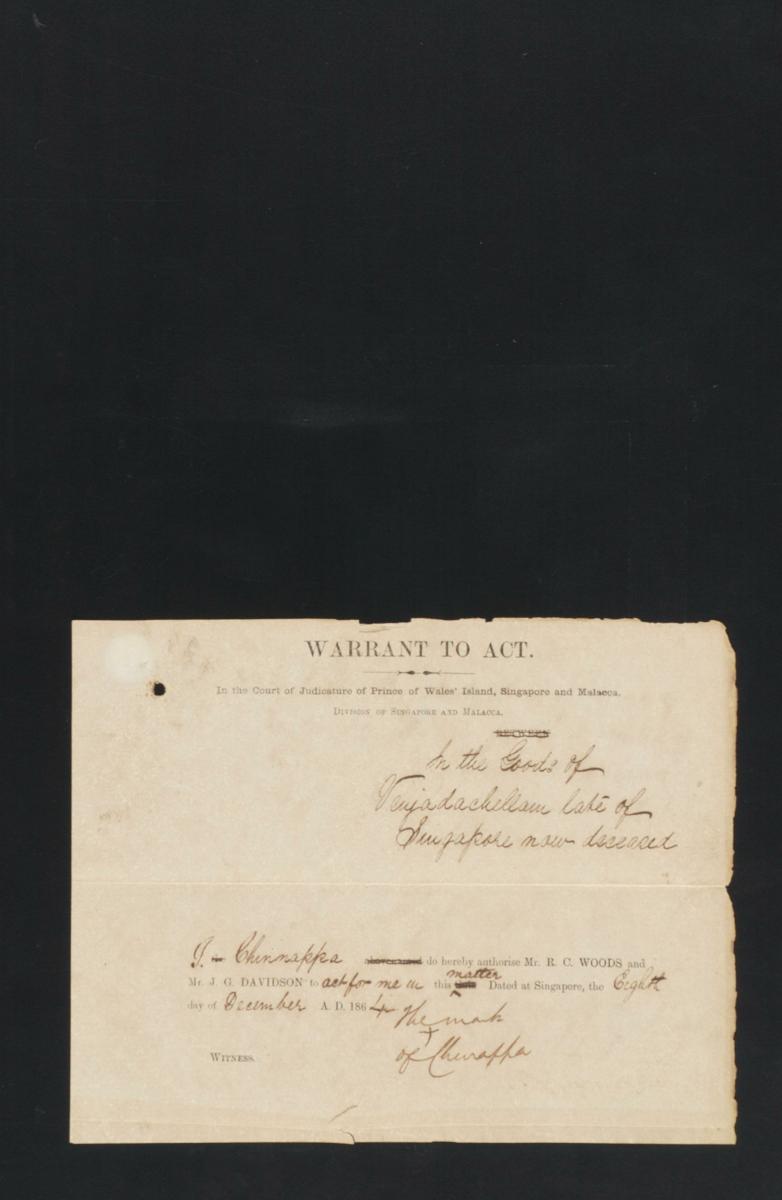 WARRANT TO ACT.
In the Court of Judicature of Prince of Wales' Island, Singapore and Malacca.
DIVISION OF SINGAPORE AND MALACCA.
BETWEEN
In the Goods of
Venjadachellam late of
Singapore now deceased
I. Chinnappa abovenamed do hereby authorise Mr. R. C. WOODS and
matter
Mr. J. G. DAVIDSON to act for me in this Dated at Singapore, the Eighth
day of December A. D. 1864
The mark
+
WITNESS. of Chinappa